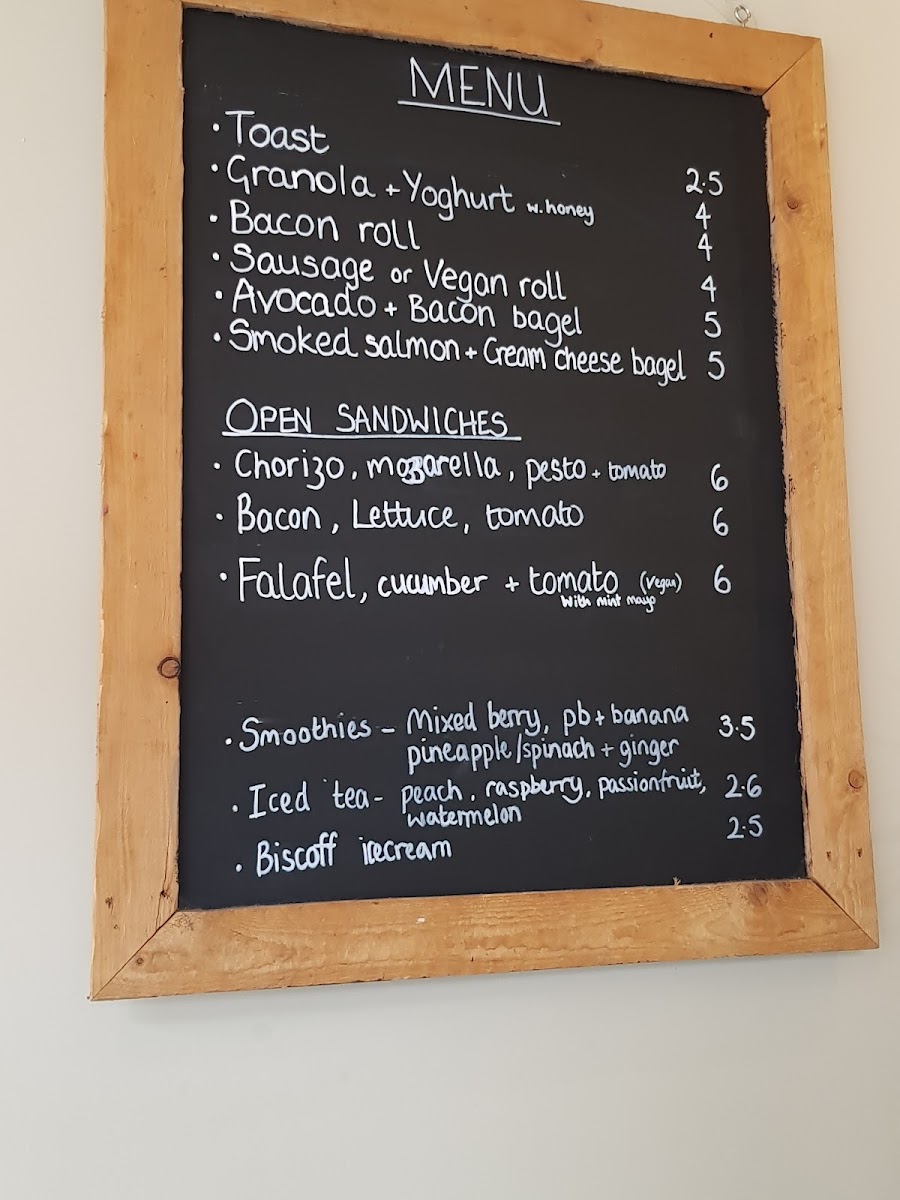 MENU
· Toast 2.5
· Granola + Yoghurt w. honey 4
· Bacon roll 4
· Sausage or Vegan roll 4
· Avocado + Bacon bagel 5
· Smoked salmon + Cream cheese bagel 5
OPEN SANDWICHES
· Chorizo, mozzarella, pesto + tomato 6
· Bacon, Lettuce, tomato 6
· Falafel, cucumber + tomato (vegan) 6
with mint mayo
· Smoothies - Mixed berry, pb + banana 3.5
pineapple/spinach + ginger
· Iced tea - peach, raspberry, passionfruit, 2.6
watermelon
· Biscoff icecream 2.5